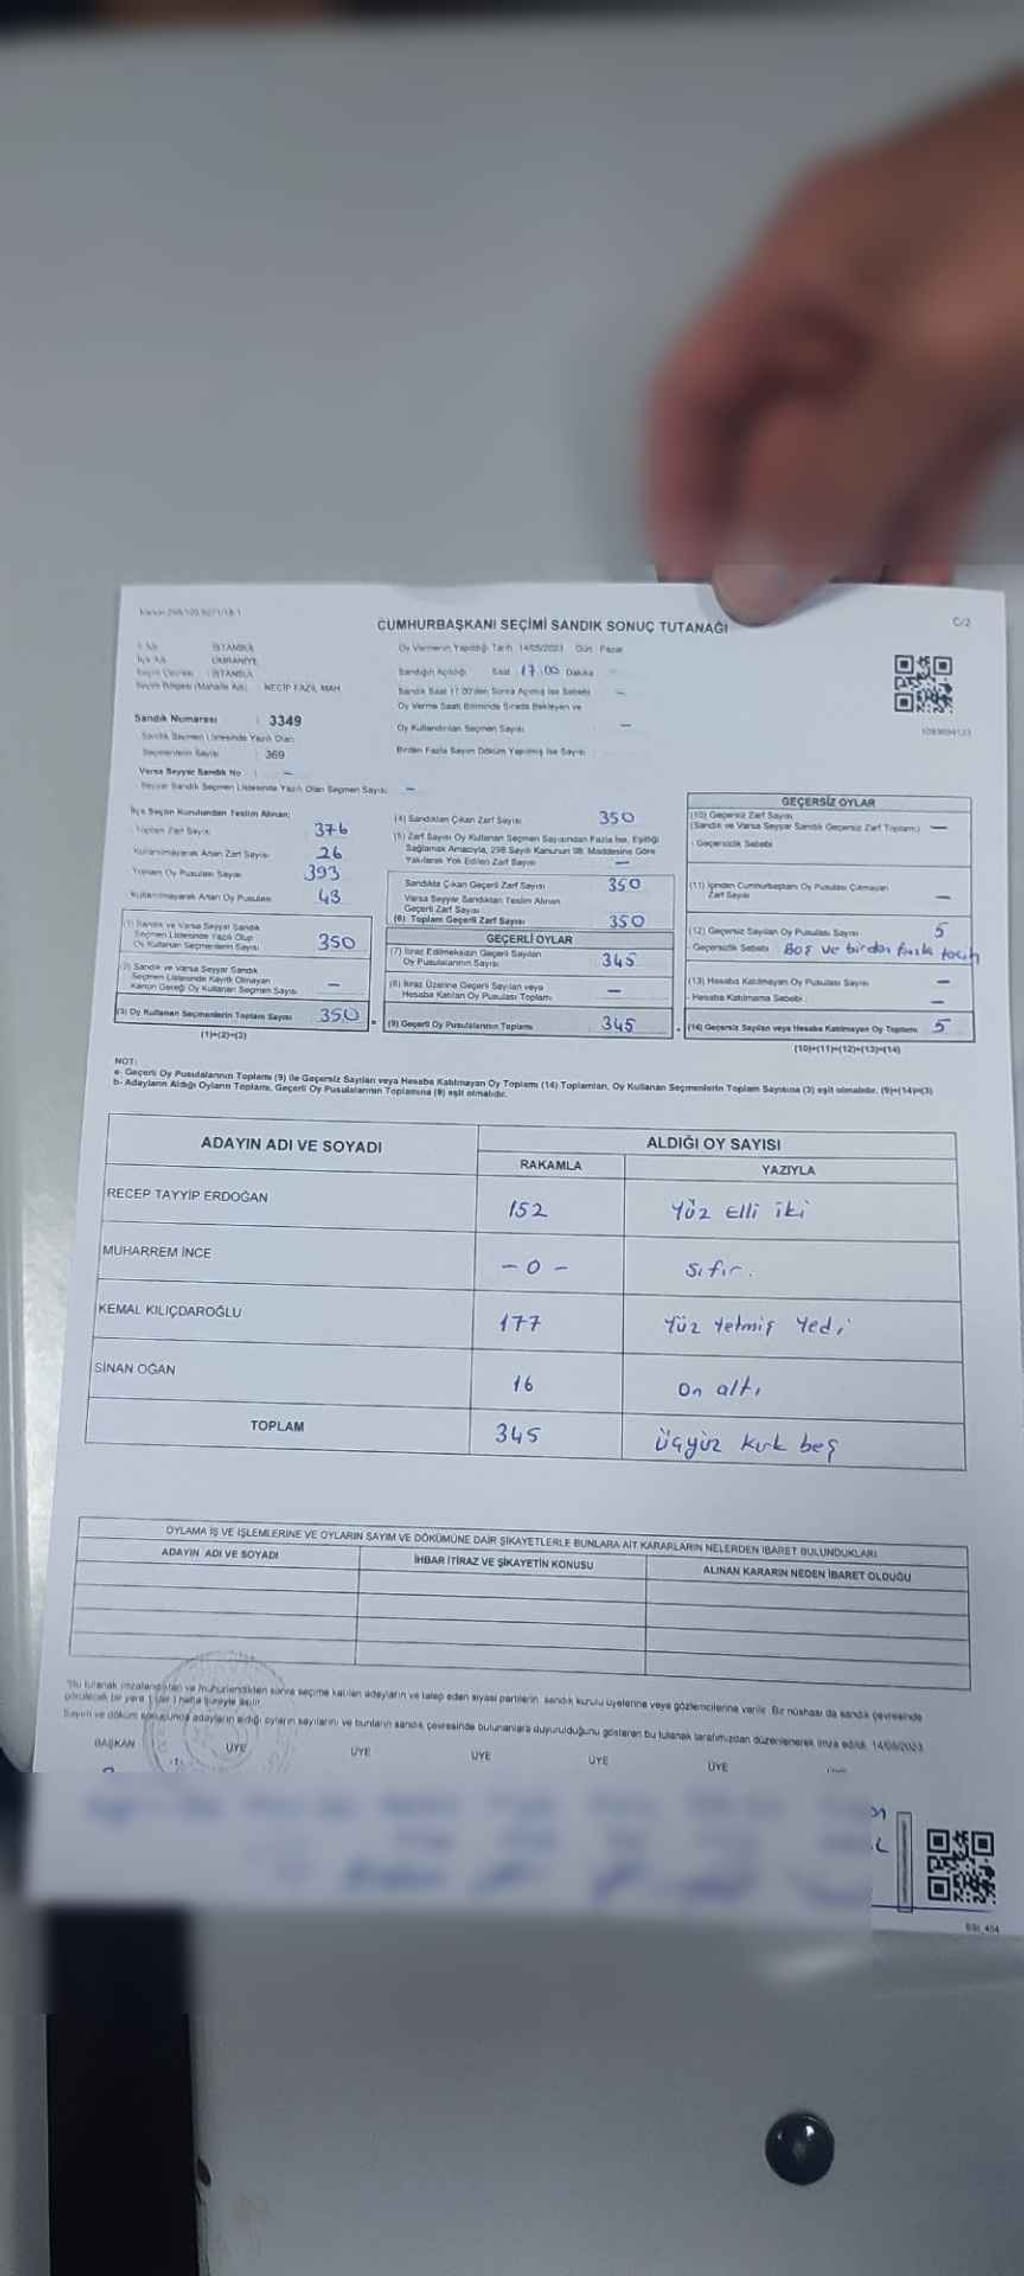 CUMHURBAŞKANI SEÇİMİ SANDIK SONUÇ TUTANAĞI
C/2
İSTANBUL
ÜMRANİYE
İSTANBUL
NECİP FAZIL MAH
Oy Vermenin Yapıldığı Tarih 14/05/2023 Gün Pazar
Sandığın Açıldığı Saat 17.00 Dakika
Sandık Saat 17.00'den Sonra Açılmış İse Sebebi —
Oy Verme Saati Bitiminde Sırada Bekleyen ve
Oy Kullandırılan Seçmen Sayısı —
Birden Fazla Sayım Döküm Yapılmış İse Sayısı
Sandık Numarası : 3349
Sandık Seçmen Listesinde Yazılı Olan
Seçmenlerin Sayısı : 369
Varsa Seyyar Sandık No : —
Seyyar Sandık Seçmen Listesinde Yazılı Olan Seçmen Sayısı —
İlçe Seçim Kurulundan Teslim Alınan;
Toplam Zarf Sayısı 376
Kullanılmayarak Artan Zarf Sayısı 26
Toplam Oy Pusulası Sayısı 393
Kullanılmayarak Artan Oy Pusulası 43
(1) Sandık ve Varsa Seyyar Sandık
Seçmen Listesinde Yazılı Olup
Oy Kullanan Seçmenlerin Sayısı 350
(2) Sandık ve Varsa Seyyar Sandık
Seçmen Listesinde Kayıtlı Olmayan
Kanun Gereği Oy Kullanan Seçmen Sayısı —
(3) Oy Kullanan Seçmenlerin Toplam Sayısı 350
(1)+(2)=(3)
(4) Sandıktan Çıkan Zarf Sayısı 350
(5) Zarf Sayısı Oy Kullanan Seçmen Sayısından Fazla İse, Eşitliği
Sağlamak Amacıyla, 298 Sayılı Kanunun 98. Maddesine Göre
Yakılarak Yok Edilen Zarf Sayısı —
Sandıkta Çıkan Geçerli Zarf Sayısı 350
Varsa Seyyar Sandıktan Teslim Alınan
Geçerli Zarf Sayısı
(6) Toplam Geçerli Zarf Sayısı 350
GEÇERLİ OYLAR
(7) İtiraz Edilmeksizin Geçerli Sayılan
Oy Pusulalarının Sayısı 345
(8) İtiraz Üzerine Geçerli Sayılan veya
Hesaba Katılan Oy Pusulası Toplamı —
(9) Geçerli Oy Pusulalarının Toplamı 345
GEÇERSİZ OYLAR
(10) Geçersiz Zarf Sayısı
(Sandık ve Varsa Seyyar Sandık Geçersiz Zarf Toplamı) —
- Geçersizlik Sebebi
(11) İçinden Cumhurbaşkanı Oy Pusulası Çıkmayan
Zarf Sayısı —
(12) Geçersiz Sayılan Oy Pusulası Sayısı 5
- Geçersizlik Sebebi Boş ve birden fazla tercih
(13) Hesaba Katılmayan Oy Pusulası Sayısı —
- Hesaba Katılmama Sebebi —
(14) Geçersiz Sayılan veya Hesaba Katılmayan Oy Toplamı 5
(10)+(11)+(12)+(13)=(14)
NOT:
a- Geçerli Oy Pusulalarının Toplamı (9) ile Geçersiz Sayılan veya Hesaba Katılmayan Oy Toplamı (14) Toplamları, Oy Kullanan Seçmenlerin Toplam Sayısına (3) eşit olmalıdır. (9)+(14)=(3)
b- Adayların Aldığı Oyların Toplamı, Geçerli Oy Pusulalarının Toplamına (9) eşit olmalıdır.
ADAYIN ADI VE SOYADI
ALDIĞI OY SAYISI
RAKAMLA YAZIYLA
RECEP TAYYİP ERDOĞAN 152 Yüz Elli iki
MUHARREM İNCE – 0 – Sıfır.
KEMAL KILIÇDAROĞLU 177 Yüz Yetmiş Yedi
SİNAN OĞAN 16 On altı
TOPLAM 345 Üçyüz kırk beş
OYLAMA İŞ VE İŞLEMLERİNE VE OYLARIN SAYIM VE DÖKÜMÜNE DAİR ŞİKAYETLERLE BUNLARA AİT KARARLARIN NELERDEN İBARET BULUNDUKLARI
ADAYIN ADI VE SOYADI İHBAR İTİRAZ VE ŞİKAYETİN KONUSU ALINAN KARARIN NEDEN İBARET OLDUĞU
Bu tutanak imzalandıktan ve mühürlendikten sonra seçime katılan adayların ve talep eden siyasi partilerin sandık kurulu üyelerine veya gözlemcilerine verilir. Bir nüshası da sandık çevresinde
görülecek bir yere 1 (bir) hafta süreyle asılır.
Sayım ve döküm sonucunda adayların aldığı oyların sayılarını ve bunların sandık çevresinde bulunanlara duyurulduğunu gösteren bu tutanak tarafımızdan düzenlenerek imza edildi. 14/05/2023
BAŞKAN ÜYE ÜYE ÜYE ÜYE ÜYE